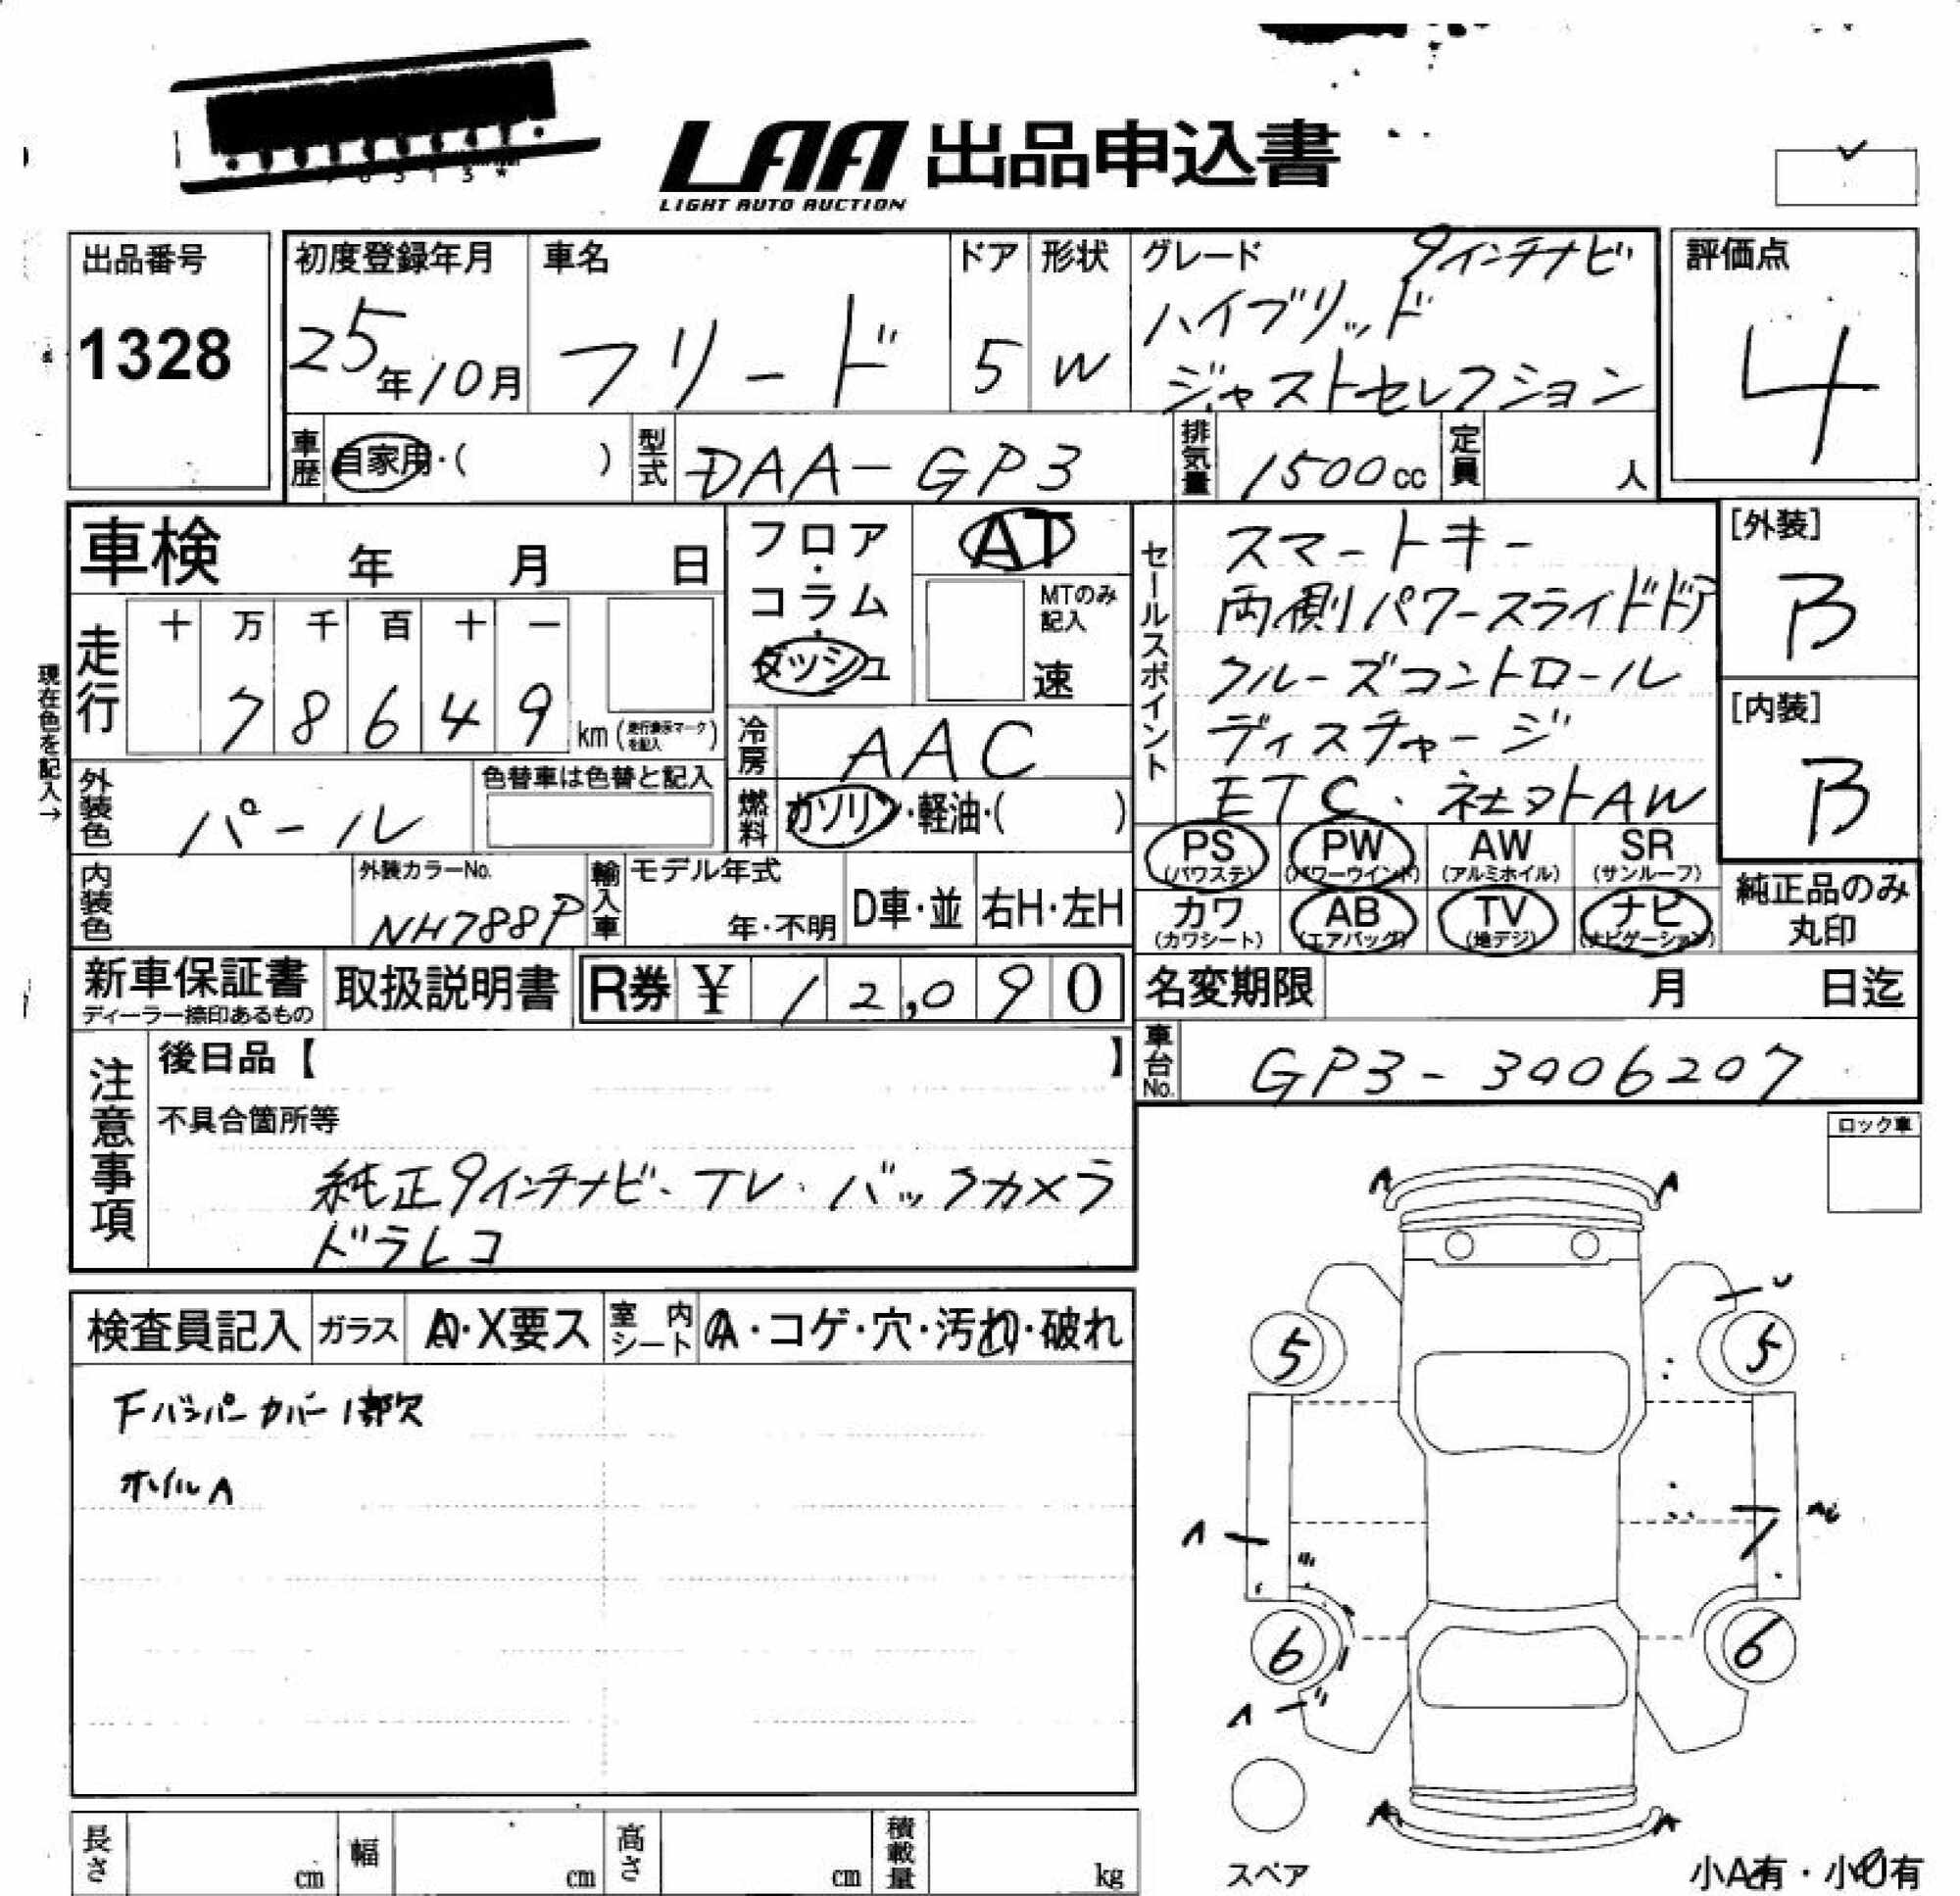 LAA 出品申込書
LIGHT AUTO AUCTION
出品番号
1328
初度登録年月
25年10月
車名
フリード
ドア
5
形状
W
グレード
9インチナビ
ハイブリッド
ジャストセレクション
評価点
4
車歴
自家用・( )
型式
DAA-GP3
排気量
1500cc
定員
人
車検 年 月 日
フロア・コラム・ダッシュ
AT
MTのみ記入
速
セールスポイント
スマートキー
両側パワースライドドア
クルーズコントロール
ディスチャージ
ETC、社外AW
[外装]
B
[内装]
B
現在色を記入→
走行
十 万 千 百 十 一
7 8 6 4 9
km(走行表示マークを記入)
冷房
AAC
燃料
ガソリン・軽油・( )
外装色
パール
色替車は色替と記入
内装色
外装カラーNo.
NH788P
輸入車
モデル年式
年・不明
D車・並
右H・左H
PS
(パワステ)
PW
(パワーウインド)
AW
(アルミホイル)
SR
(サンルーフ)
カワ
(カワシート)
AB
(エアバッグ)
TV
(地デジ)
ナビ
(ナビゲーション)
純正品のみ
丸印
新車保証書
ディーラー捺印あるもの
取扱説明書
R券 ¥ 12,090
名変期限 月 日迄
車台No.
GP3-3006207
注意事項
後日品【 】
不具合箇所等
純正9インチナビ、TV、バックカメラ
ドラレコ
ロック車
検査員記入
ガラス
A・X要ス
室内シート
A・コゲ・穴・汚れ・破れ
Fバンパーカバー1部欠
ホイルA
A A
5 5
A
6 6
A
A A
スペア
小A有・小U有
長さ cm
幅 cm
高さ cm
積載量 kg